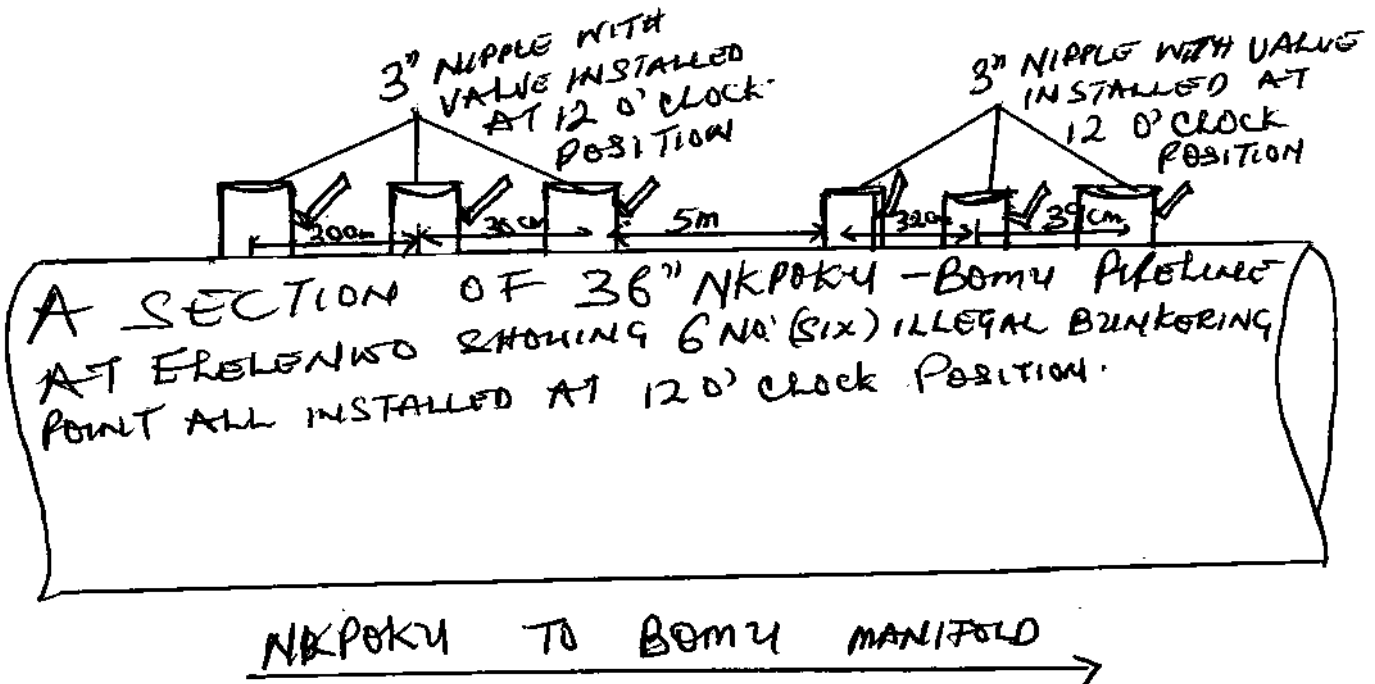 3" NIPPLE WITH
VALVE INSTALLED
AT 12 O' CLOCK
POSITION
3" NIPPLE WITH VALVE
INSTALLED AT
12 O' CLOCK
POSITION
5m
A SECTION OF 36" NKPOKU - BOMU PIPELINE
AT ELELENWO SHOWING 6 NO. (SIX) ILLEGAL BUNKERING
POINT ALL INSTALLED AT 12 O' CLOCK POSITION.
NKPOKU TO BOMU MANIFOLD